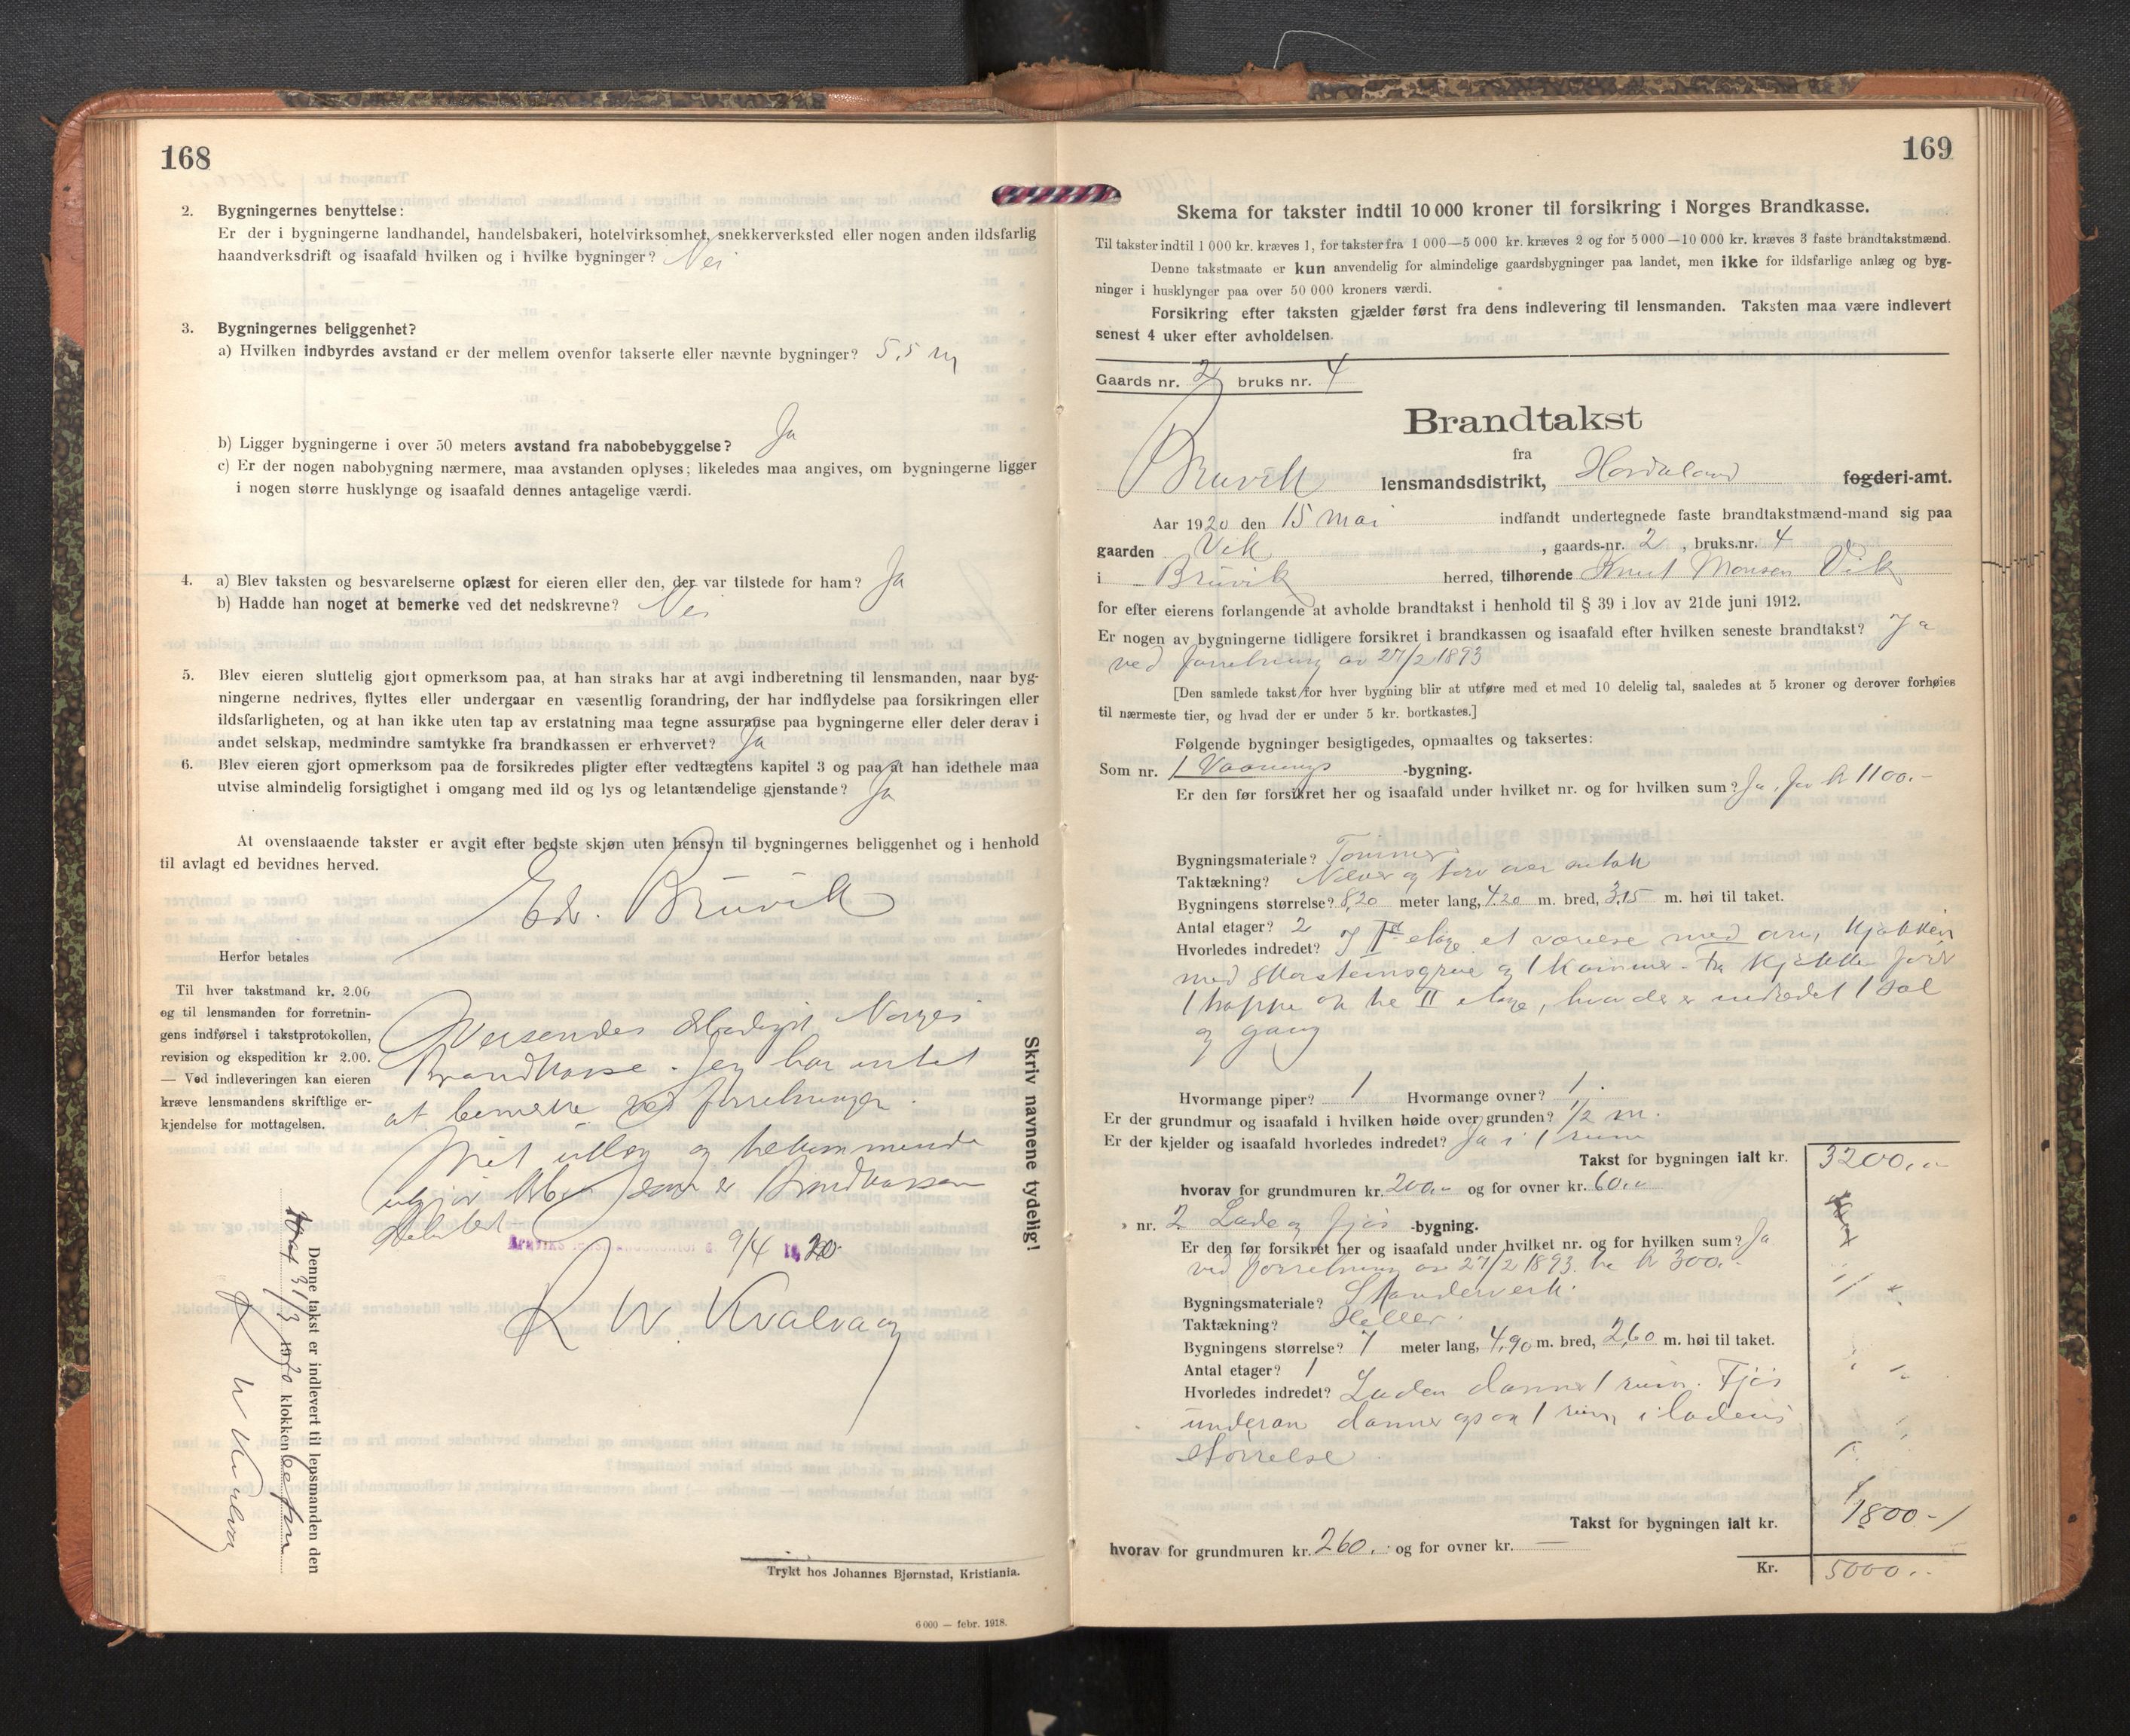 168
2. Bygningernes benyttelse:
Er der i bygningerne landhandel, handelsbakeri, hotelvirksomhet, snekkerverksted eller nogen anden ildsfarlig
haandverksdrift og isaafald hvilken og i hvilke bygninger? Nei
3. Bygningernes beliggenhet?
a) Hvilken indbyrdes avstand er der mellem ovenfor takserte eller nævnte bygninger? 5,5 m
b) Ligger bygningerne i over 50 meters avstand fra nabobebyggelse? Ja
c) Er der nogen nabobygning nærmere, maa avstanden oplyses; likeledes maa angives, om bygningerne ligger
i nogen større husklynge og isaafald dennes antagelige værdi.
4. a) Blev taksten og besvarelserne oplæst for eieren eller den, der var tilstede for ham? Ja
b) Hadde han noget at bemerke ved det nedskrevne? Nei
5. Blev eieren sluttelig gjort opmerksom paa, at han straks har at avgi indberetning til lensmanden, naar byg-
ningerne nedrives, flyttes eller undergaar en væsentlig forandring, der har indflydelse paa forsikringen eller
ildsfarligheten, og at han ikke uten tap av erstatning maa tegne assuranse paa bygningerne eller deler derav i
andet selskap, medmindre samtykke fra brandkassen er erhvervet? Ja
6. Blev eieren gjort opmerksom paa de forsikredes pligter efter vedtægtens kapitel 3 og paa at han idethele maa
utvise almindelig forsigtighet i omgang med ild og lys og letantændelige gjenstande? Ja
At ovenstaaende takster er avgit efter bedste skjøn uten hensyn til bygningernes beliggenhet og i henhold
til avlagt ed bevidnes herved.
Edv. Bruvik
Herfor betales
Til hver takstmand kr. 2.00
og til lensmanden for forretnin-
gens indførsel i takstprotokollen,
revision og ekspedition kr 2.00.
— Ved indleveringen kan eieren
kræve lensmandens skriftlige er-
kjendelse for mottagelsen.
Oversendes Norges
Brandkasse. Jeg har intet
at bemerke ved forretningen.
Mit utlæg og tilkommende
utgjør som er Brandkassen
debitert
9/4 1920
R W Kvalvaag
Skriv navnene tydelig!
Denne takst er indlevert til lensmanden den
31/3 1920 klokken
R W Kvalvaag
Trykt hos Johannes Bjørnstad, Kristiania.
6 000 — febr. 1918.
169
Skema for takster indtil 10 000 kroner til forsikring i Norges Brandkasse.
Til takster indtil 1 000 kr. kræves 1, for takster fra 1 000—5 000 kr. kræves 2 og for 5 000—10 000 kr. kræves 3 faste brandtakstmænd.
Denne takstmaate er kun anvendelig for almindelige gaardsbygninger paa landet, men ikke for ildsfarlige anlæg og byg-
ninger i husklynger paa over 50 000 kroners værdi.
Forsikring efter taksten gjælder først fra dens indlevering til lensmanden. Taksten maa være indlevert
senest 4 uker efter avholdelsen.
Gaards nr. 2 bruks nr. 4
Brandtakst
fra
Bruvik lensmandsdistrikt, Hordaland fogderi-amt.
Aar 1920 den 15 mai indfandt undertegnede faste brandtakstmænd-mand sig paa
gaarden Vik, gaards-nr. 2, bruks.nr. 4
i Bruvik herred, tilhørende Knut Monsen Vik
for efter eierens forlangende at avholde brandtakst i henhold til § 39 i lov av 21de juni 1912.
Er nogen av bygningerne tidligere forsikret i brandkassen og isaafald efter hvilken seneste brandtakst? Ja
ved forretning av 27/2 1893
[Den samlede takst for hver bygning blir at utføre med et med 10 delelig tal, saaledes at 5 kroner og derover forhøies
til nærmeste tier, og hvad der er under 5 kr. bortkastes.]
Følgende bygninger besigtigedes, opmaaltes og taksertes:
Som nr. 1 Vaanings-bygning.
Er den før forsikret her og isaafald under hvilket nr. og for hvilken sum? Ja, for kr 1100.-
Bygningsmateriale? Tømmer
Taktækning? Næver og torv
Bygningens størrelse? 8,20 meter lang, 4.20 m. bred, 3,15 m. høi til taket.
Antal etager? 2
Hvorledes indredet? I I etage et værelse med ovn, kjøkken
med skorstensgrue og 1 kammer. Fra kjøkken fører
1 trappe op til II etage, hvor der er indredet 1 sal
og gang
Hvormange piper? 1 Hvormange ovner? 1.
Er der grundmur og isaafald i hvilken høide over grunden? 1/2 m.
Er der kjelder og isaafald hvorledes indredet? Ja i 1 rum
Takst for bygningen ialt kr. 3200,-
hvorav for grundmuren kr. 200,- og for ovner kr. 60,-
» nr. 2 Lade og fjøs-bygning.
Er den før forsikret her og isaafald under hvilket nr. og for hvilken sum? Ja
ved forretning av 27/2 1893. til kr 300.-
Bygningsmateriale? Standerverk.
Taktækning? Heller.
Bygningens størrelse? 7 meter lang, 4,90 m. bred, 2,60 m. høi til taket.
Antal etager? 1
Hvorledes indredet? Laden danner 1 rum. Fjøs
underom danner ogsaa 1 rum i ladens
størrelse.
Takst for bygningen ialt kr. 1800-
hvorav for grundmuren kr. 260.- og for ovner kr. —
Kr. 5000.-